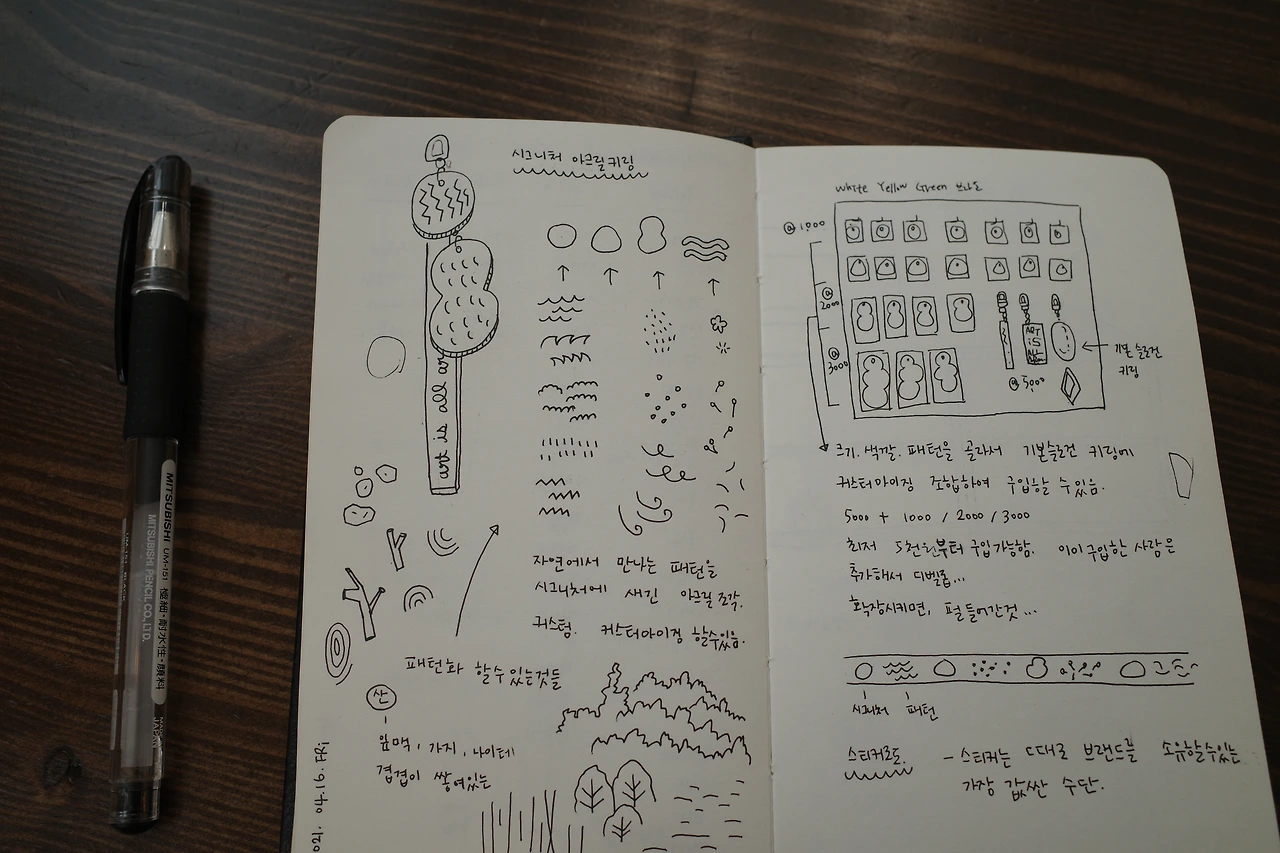 시그니처 아크릴키링
art is all ar
자연에서 만나는 패턴을
시그니처에 새긴 아크릴 조각.
커스텀. 커스터마이징 할수있음.
패턴화 할수있는것들
산
잎맥, 가지, 나이테
겹겹이 쌓여있는
2021. 04. 16. FRi
White Yellow Green 보나도
@ 1,000
@ 2000
@ 3000
ART
iS
ALL
@ 5,000
기본 슬로건
키링
크기. 색깔. 패턴을 골라서 기본슬로건 키링에
커스터마이징 조합하여 구입할 수 있음.
5000 + 1000 / 2000 / 3000
최저 5천원부터 구입가능함. 이미 구입한 사람은
추가해서 디벨롭...
확장시키면, 펼 들어간것...
시그니처 패턴
스티커로도. - 스티커는 브랜드를 소유할수있는
가장 값싼 수단.
MITSUBISHI UM-151 極細・耐水性・顔料
MITSUBISHI PENCIL CO., LTD.